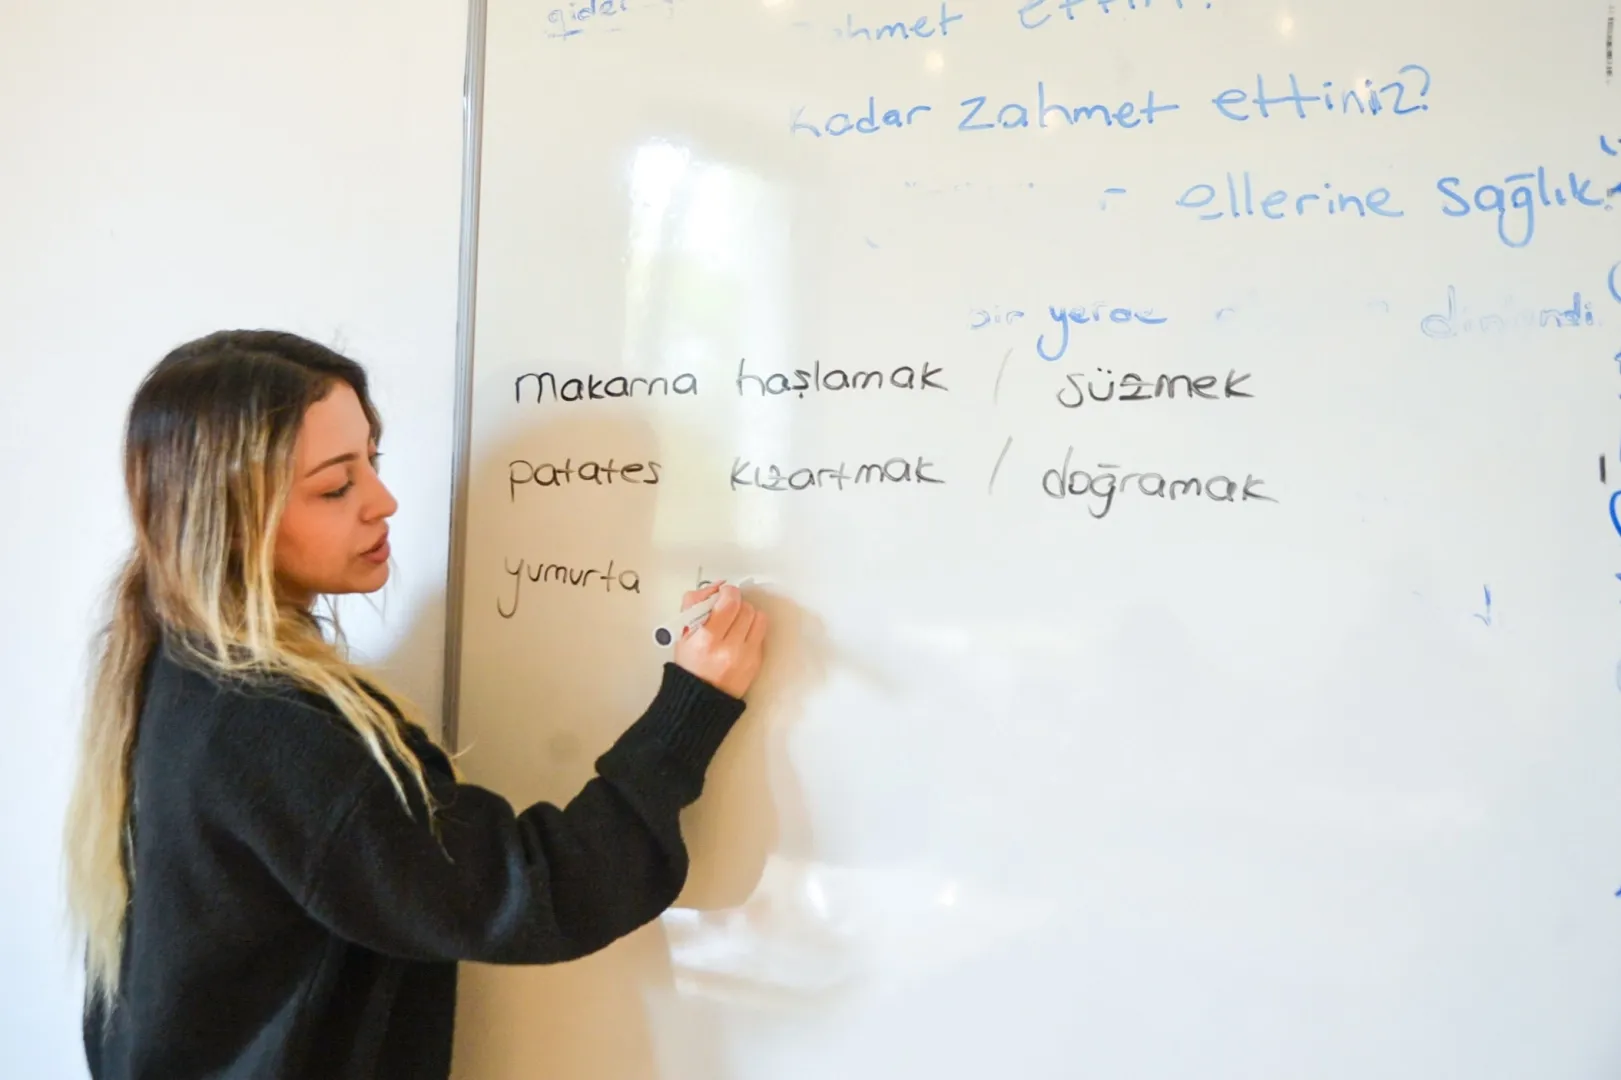 zahmet ettiniz?
kadar zahmet ettiniz?
ellerine sağlık
bir yerde
makarna haşlamak / süzmek
patates kızartmak / doğramak
yumurta